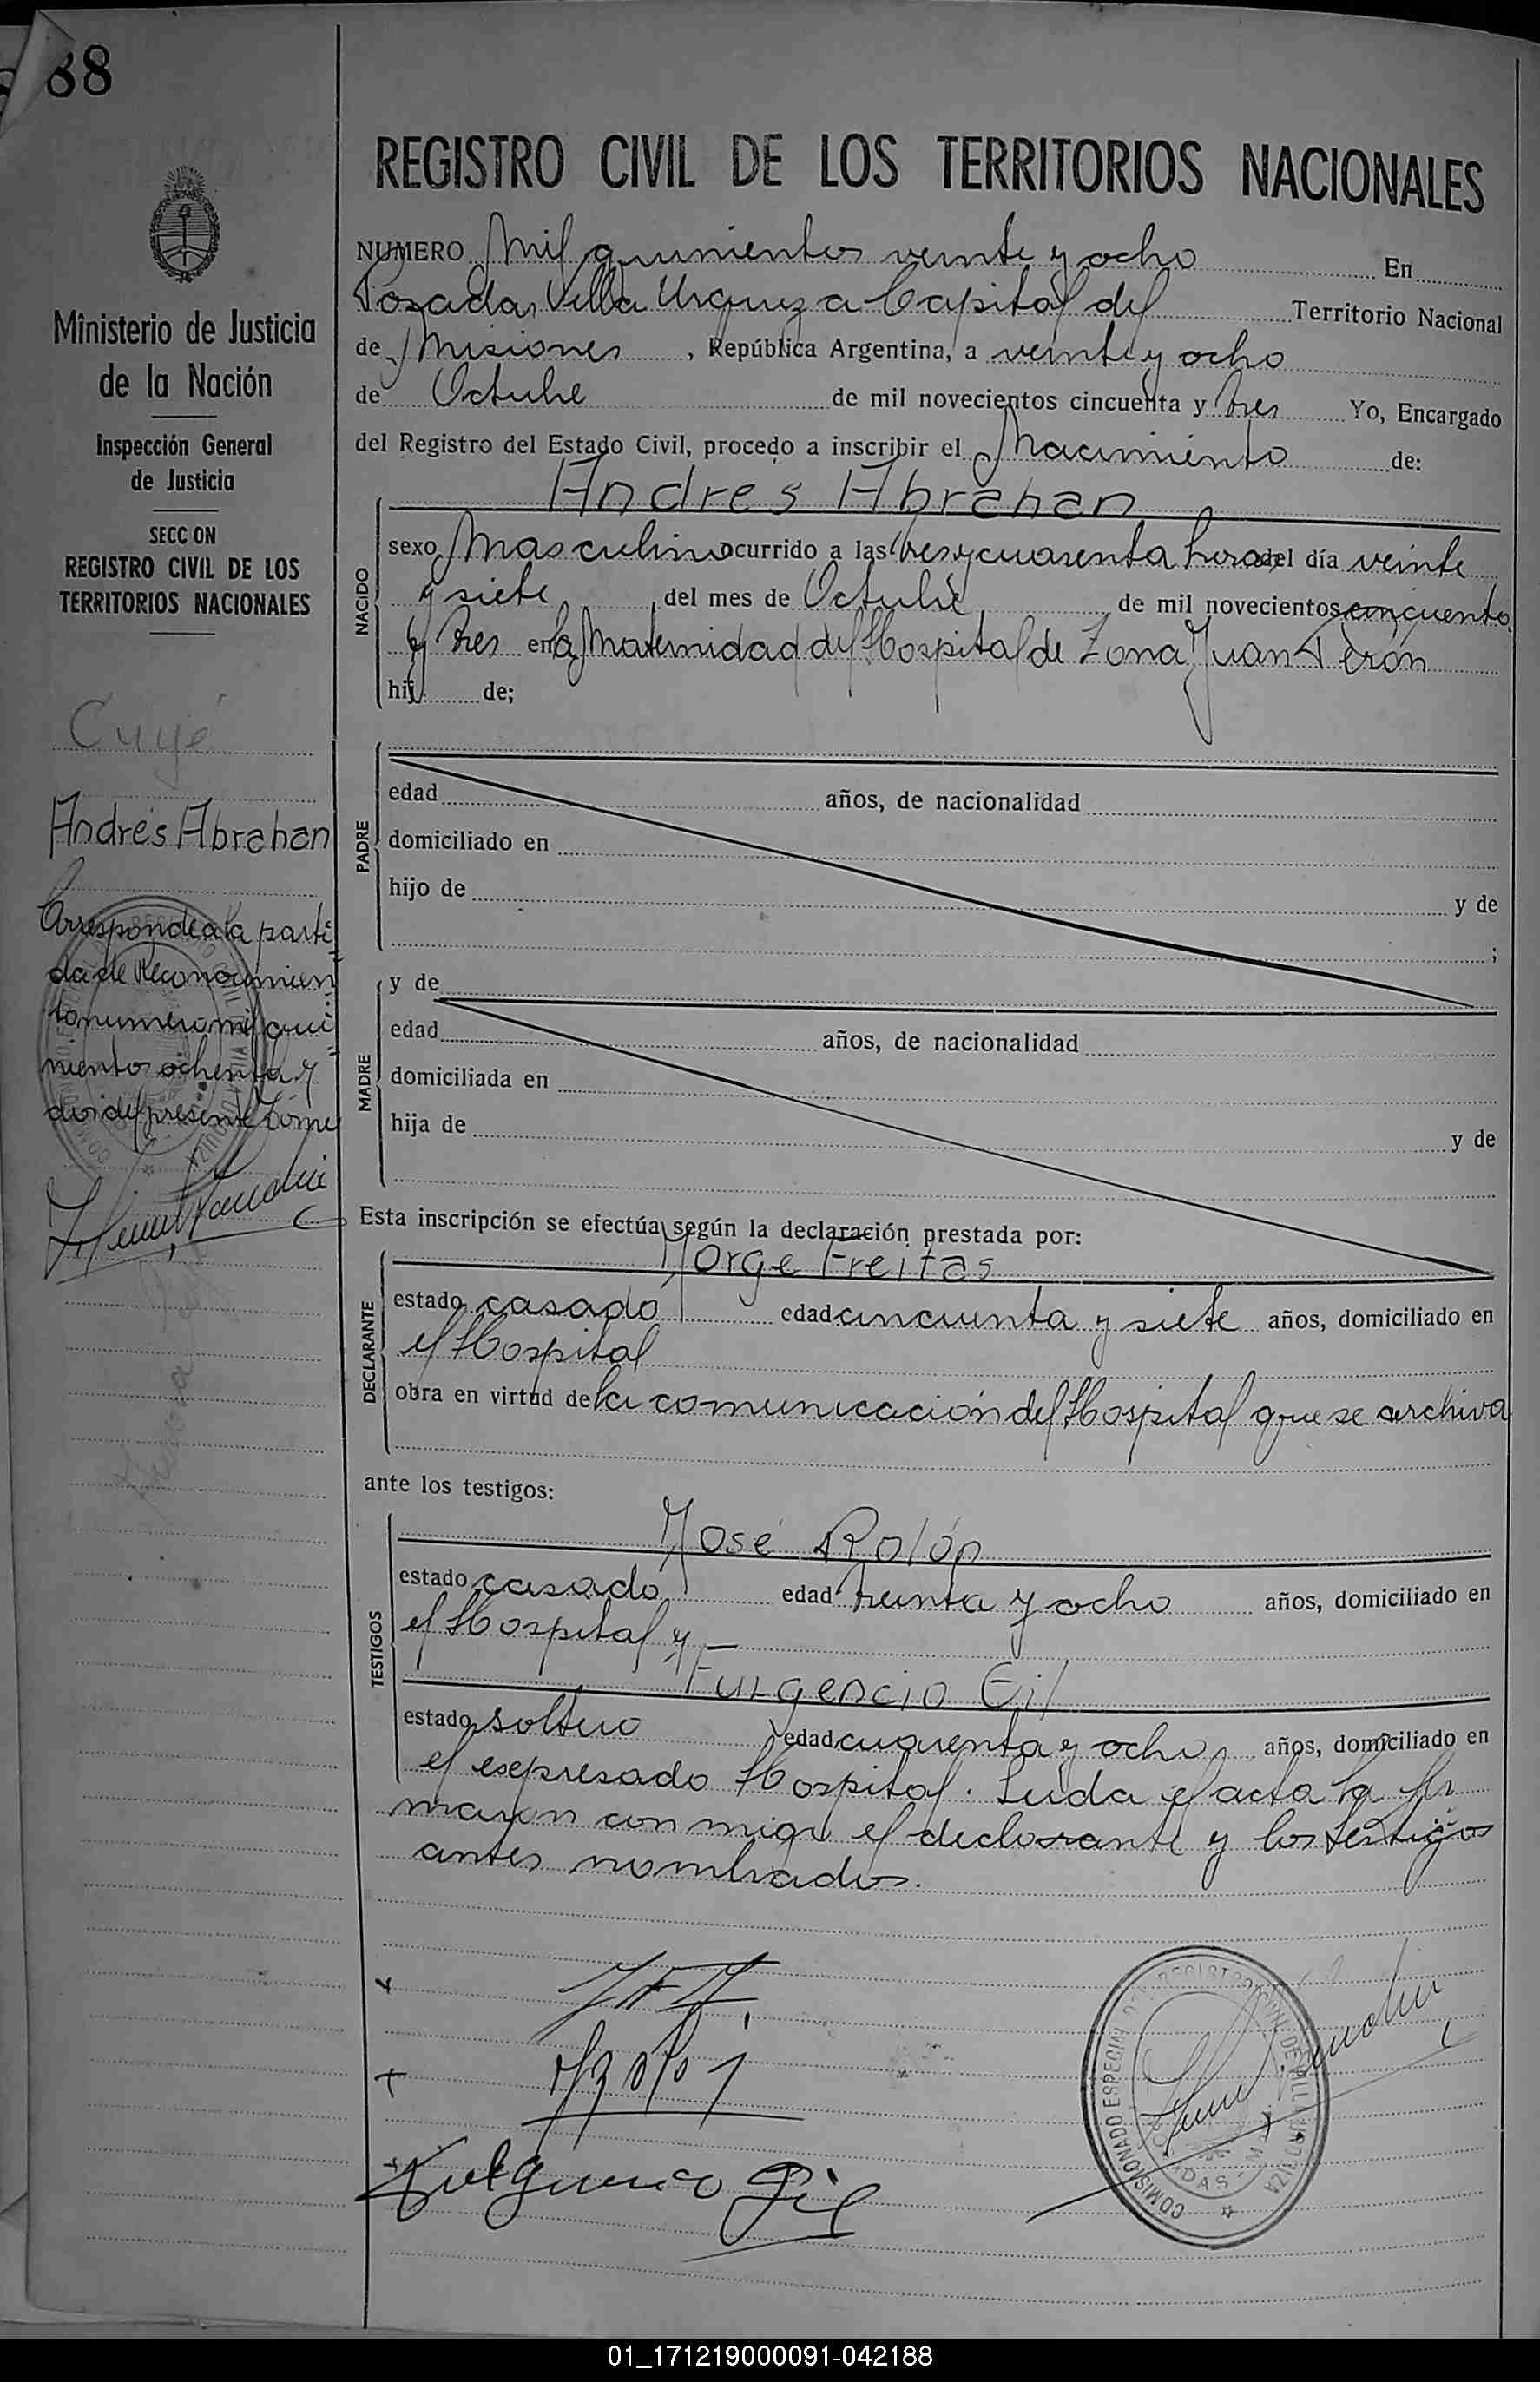 88
REGISTRO CIVIL DE LOS TERRITORIOS NACIONALES
Ministerio de Justicia
de la Nación
Inspección General
de Justicia
SECC ON
REGISTRO CIVIL DE LOS
TERRITORIOS NACIONALES
Cuyé
Andrés Abrahan
Corresponde a la parti
da de Reconocimien
to numero mil qui
nientos ochenta y
dos del presente Tomo
NUMERO Mil quinientos veinte y ocho En
Posadas Villa Urquiza Capital del Territorio Nacional
de Misiones, República Argentina, a veinte y ocho
de Octubre de mil novecientos cincuenta y tres Yo, Encargado
del Registro del Estado Civil, procedo a inscribir el Nacimiento de:
Andres Abrahan
NACIDO
sexo Masculino ocurrido a las tres y cuarenta horas del día veinte
y siete, del mes de Octubre, de mil novecientos cincuenta
y tres en la Maternidad del Hospital de Zona Juan Perón
hij de;
PADRE
edad años, de nacionalidad
domiciliado en
hijo de y de
;
MADRE
y de
edad años, de nacionalidad
domiciliada en
hija de y de
Esta inscripción se efectúa según la declaración prestada por:
DECLARANTE
Jorge Freitas
estado casado edad cincuenta y siete años, domiciliado en
el Hospital
obra en virtud de la comunicación del Hospital que se archiva
ante los testigos:
TESTIGOS
José Rolón
estado casado edad treinta y ocho años, domiciliado en
el Hospital y —
Fulgencio Gil
estado soltero edad cuarenta y ocho, años, domiciliado en
el esepresado Hospital. Leida el acta la fir
maron con migo el declarante y los testigos
antes nombrados.
Fulgencio Gil
COMISIONADO ESPECIAL DEL REGISTRO CIVIL DE VILLA URQUIZA
POSADAS - M
01_171219000091-042188